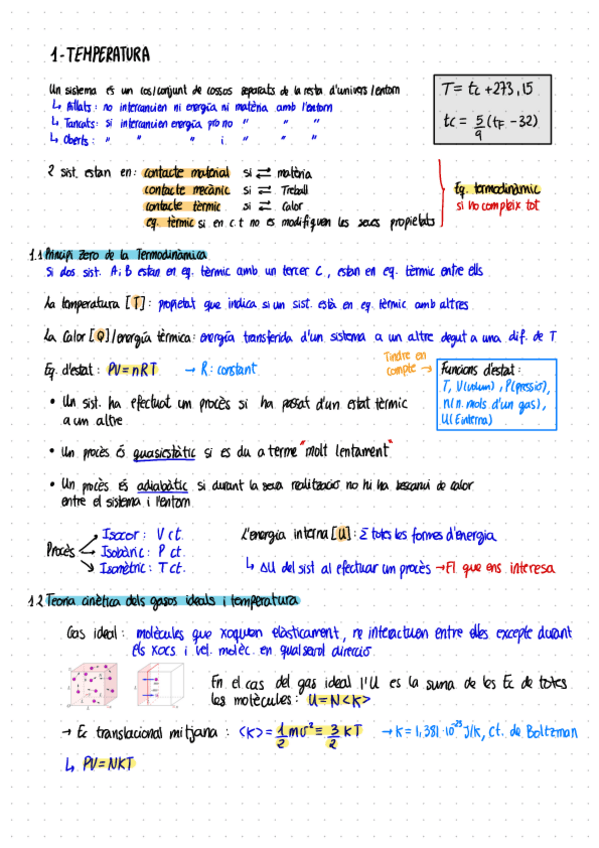 1-TEMPERATURA
Un sistema és un cos/conjunt de cossos separats de la resta d'univers/entorn
↳ Aïllats: no intercanvien ni energia ni matèria amb l'entorn
↳ Tancats: si intercanvien energia, pro no " " "
↳ Oberts: " " " i " " "
T = tc + 273,15
tc = 5/9 (tF - 32)
2 sist. estan en: contacte material si ⇄ matèria
contacte mecànic si ⇄ Treball
contacte tèrmic si ⇄ Calor
eq. tèrmic si en c.t no es modifiquen les seves propietats
Eq. termodinàmic
si no compleix tot
1.1 Principi Zero de la Termodinàmica
Si dos sist. A i B estan en eq. tèrmic amb un tercer C, estan en eq. tèrmic entre ells
La temperatura [T]: propietat que indica si un sist. està en eq. tèrmic amb altres
La Calor [Q]/energia tèrmica: energia transferida d'un sistema a un altre degut a una dif. de T
Eq. d'estat: PV = nRT → R: constant
Tindre en compte →
Funcions d'estat:
T, V(volum), P(pressió),
n(n. mols d'un gas),
U(Einterna)
• Un sist. ha efectuat un procès si ha passat d'un estat tèrmic
a un altre
• Un procès és quasiestàtic si es du a terme "molt lentament"
• Un procès és adiabàtic si durant la seva realització no hi ha bescanvi de calor
entre el sistema i l'entorn
Procès
Isocor: V ct.
Isobàric: P ct.
Isomètric: T ct.
L'energia interna [U]: Σ totes les formes d'energia
↳ ΔU del sist al efectuar un procès → El que ens interesa
1.2 Teoria cinètica dels gasos ideals i temperatura
Gas ideal: molècules que xoquen elàsticament, no interactuen entre elles excepte durant
els xocs i vel. molèc. en qualsevol direcció
En el cas del gas ideal l'U es la suma de les Ec de totes
les molècules: U = N<K>
→ Ec translacional mitjana: <K> = 1/2 mv² = 3/2 kT → k = 1,381·10⁻²³ J/k, ct. de Boltzman
↳ PV = NKT